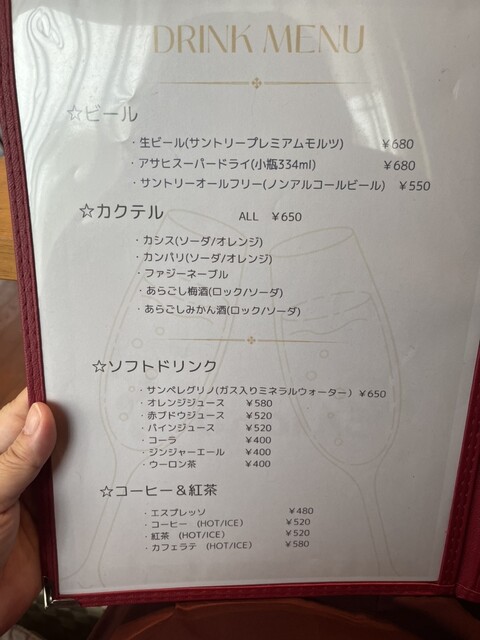 DRINK MENU
☆ビール
・生ビール(サントリープレミアムモルツ) ￥680
・アサヒスーパードライ(小瓶334ml) ￥680
・サントリーオールフリー(ノンアルコールビール) ￥550
☆カクテル ALL ￥650
・カシス(ソーダ/オレンジ)
・カンパリ(ソーダ/オレンジ)
・ファジーネーブル
・あらごし梅酒(ロック/ソーダ)
・あらごしみかん酒(ロック/ソーダ)
☆ソフトドリンク
・サンペレグリノ(ガス入りミネラルウォーター) ￥650
・オレンジジュース ￥580
・赤ブドウジュース ￥520
・パインジュース ￥520
・コーラ ￥400
・ジンジャーエール ￥400
・ウーロン茶 ￥400
☆コーヒー＆紅茶
・エスプレッソ ￥480
・コーヒー (HOT/ICE) ￥520
・紅茶 (HOT/ICE) ￥520
・カフェラテ (HOT/ICE) ￥580